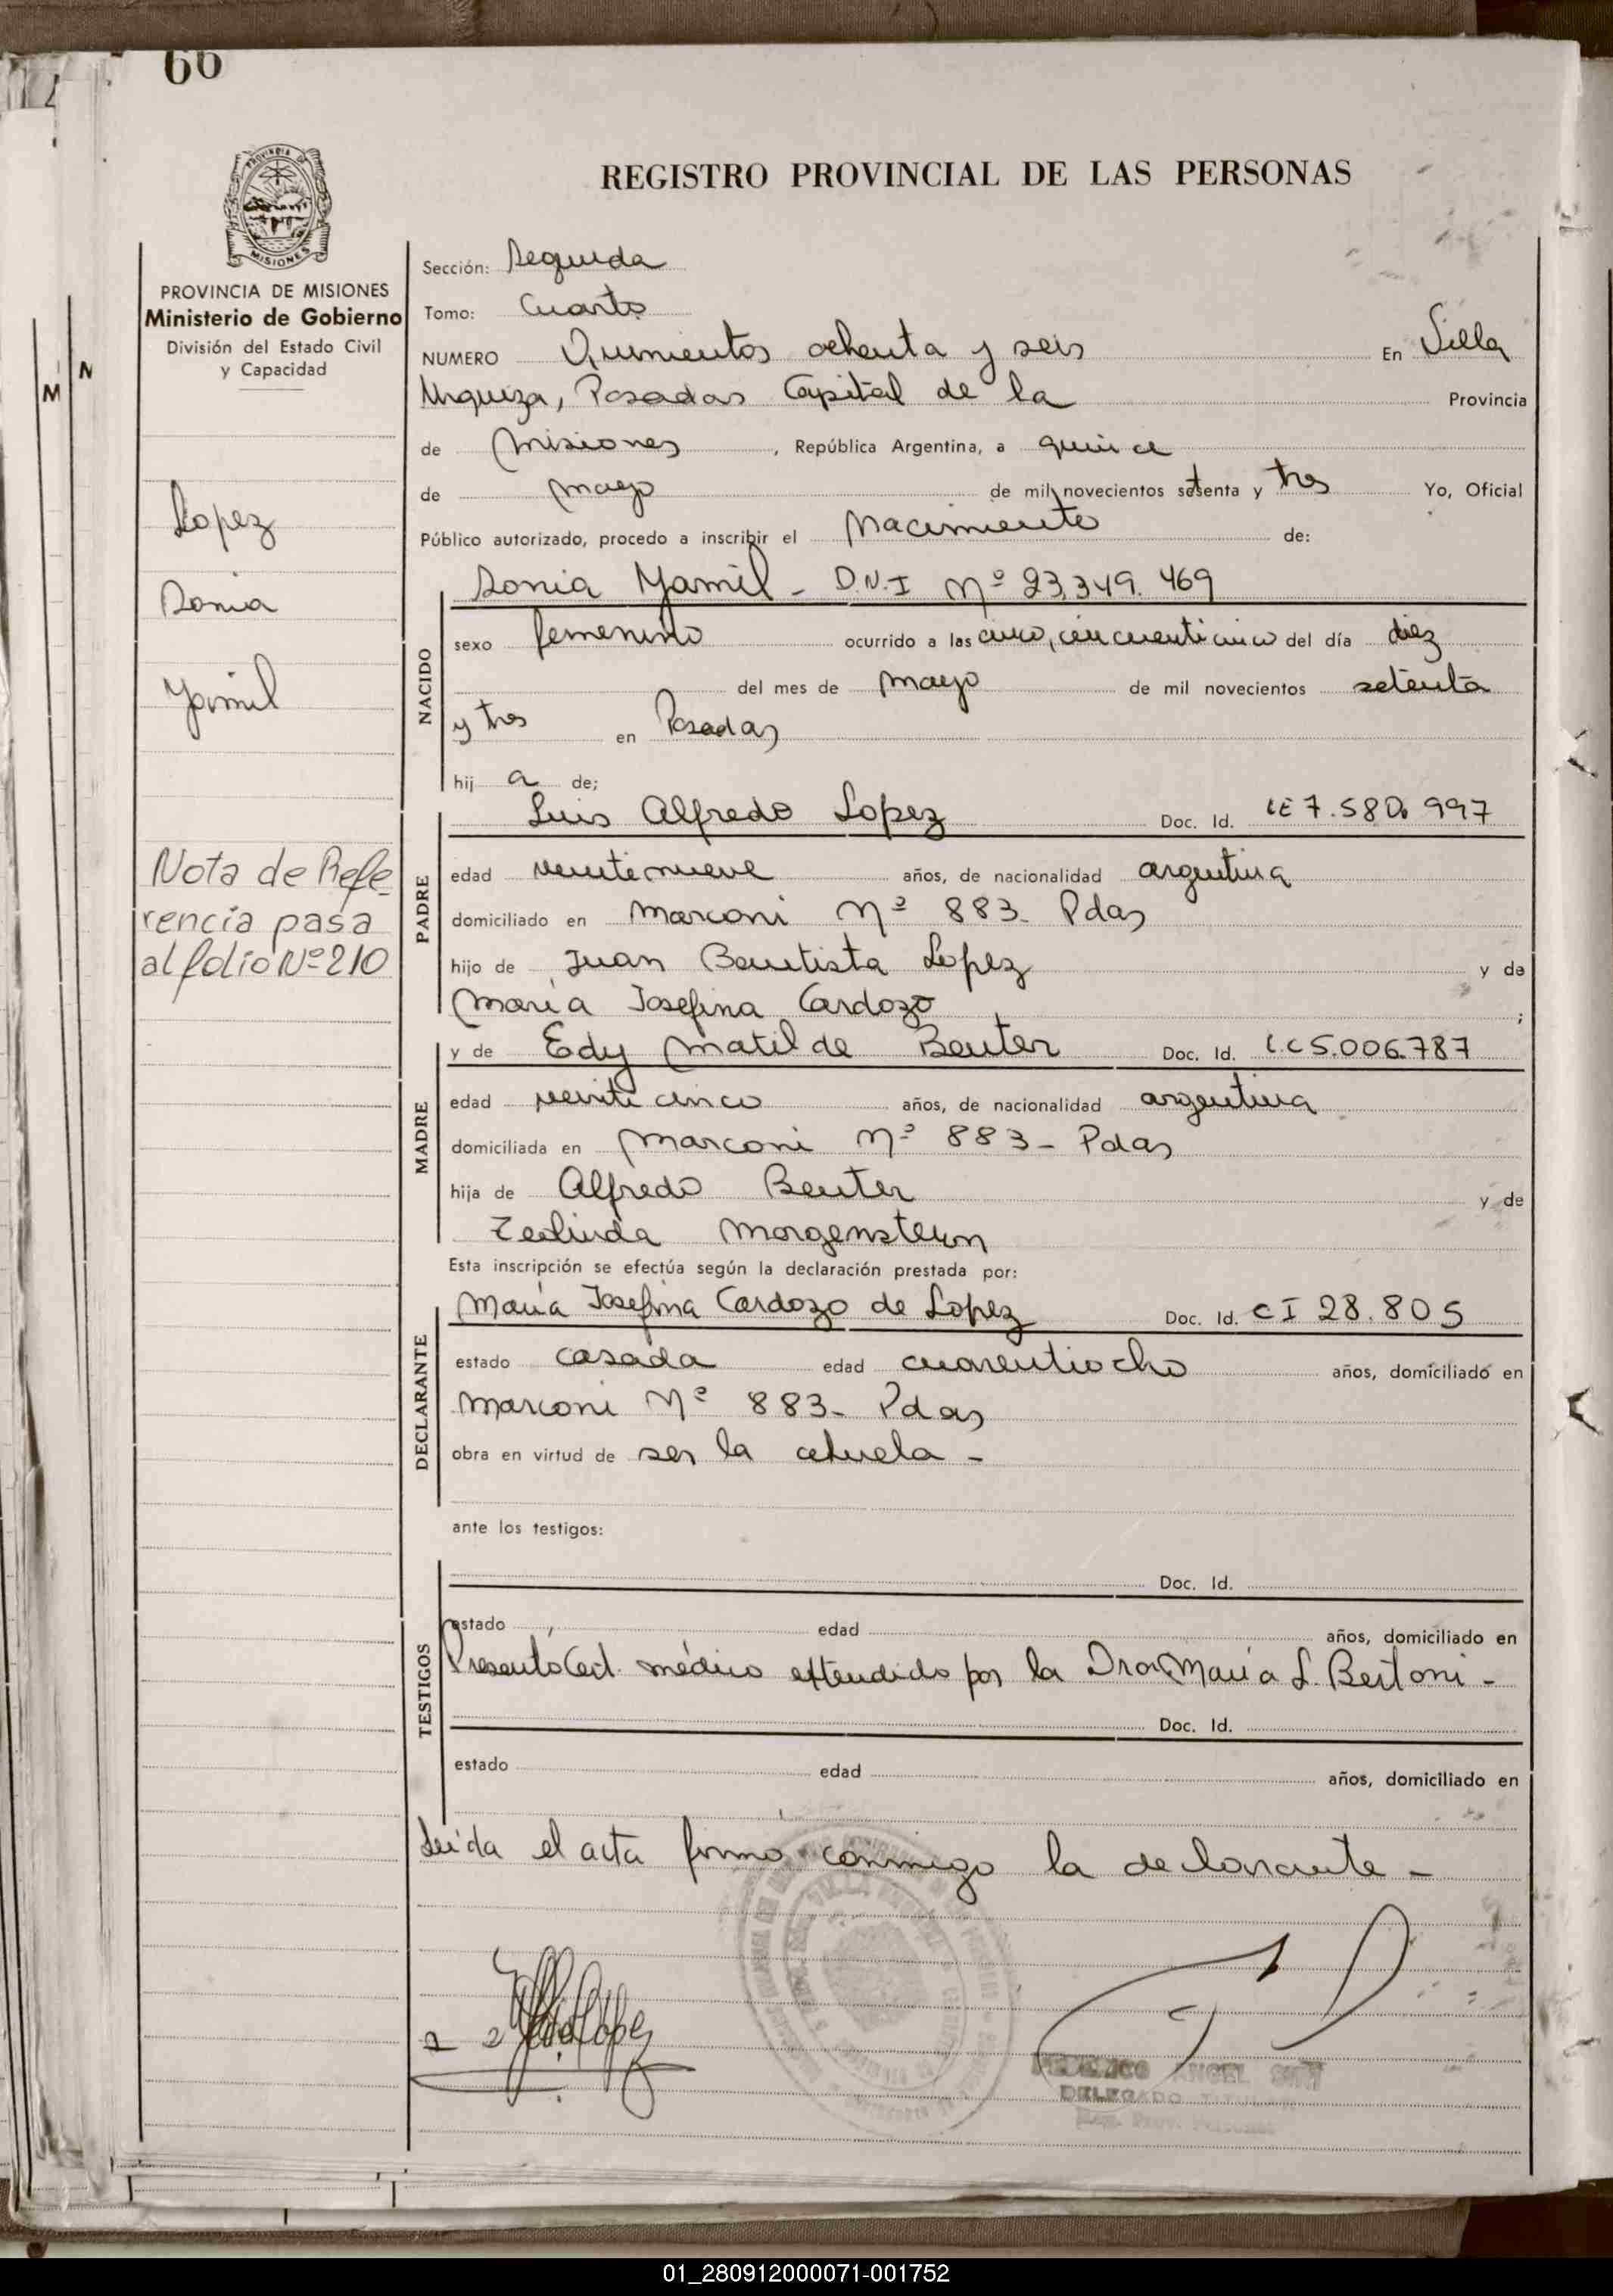 66
PROVINCIA DE
MISIONES
REGISTRO PROVINCIAL DE LAS PERSONAS
PROVINCIA DE MISIONES
Ministerio de Gobierno
División del Estado Civil
y Capacidad
Lopez
Sonia
Yamil
Nota de Refe-
rencia pasa
al folio Nº 210
Sección: Segunda
Tomo: Cuarto
NUMERO Quinientos ochenta y seis En Villa
Urquiza, Posadas Capital de la Provincia
de Misiones, República Argentina, a quince
de mayo de mil novecientos setenta y tres Yo, Oficial
Público autorizado, procedo a inscribir el Nacimiento de:
Sonia Yamil - D.N.I Nº 23.349.469
NACIDO
sexo femenino ocurrido a las cinco, cincuenticinco del día diez
del mes de mayo de mil novecientos setenta
y tres en Posadas
hij a de;
PADRE
Luis Alfredo Lopez Doc. Id. LE 7.580.997
edad veintenueve años, de nacionalidad argentina
domiciliado en Marconi Nº 883- Pdas
hijo de Juan Bautista Lopez y de
María Josefina Cardozo ;
MADRE
y de Edy Matilde Beuter Doc. Id. L.C 5.006.787
edad veinticinco años, de nacionalidad argentina
domiciliada en Marconi Nº 883- Pdas
hija de Alfredo Beuter y de
Teolinda Morgenstern
Esta inscripción se efectúa según la declaración prestada por:
DECLARANTE
María Josefina Cardozo de Lopez Doc. Id. CI 28.805
estado casada edad cuarentiocho años, domiciliado en
Marconi Nº 883- Pdas
obra en virtud de ser la abuela -
ante los testigos:
TESTIGOS
Doc. Id.
estado edad años, domiciliado en
Presentó Cert. médico extendido por la Dra. María L. Bertoni -
Doc. Id.
estado edad años, domiciliado en
Leída el acta firmó conmigo la declarante -
ANGEL
DELEGADO
01_280912000071-001752